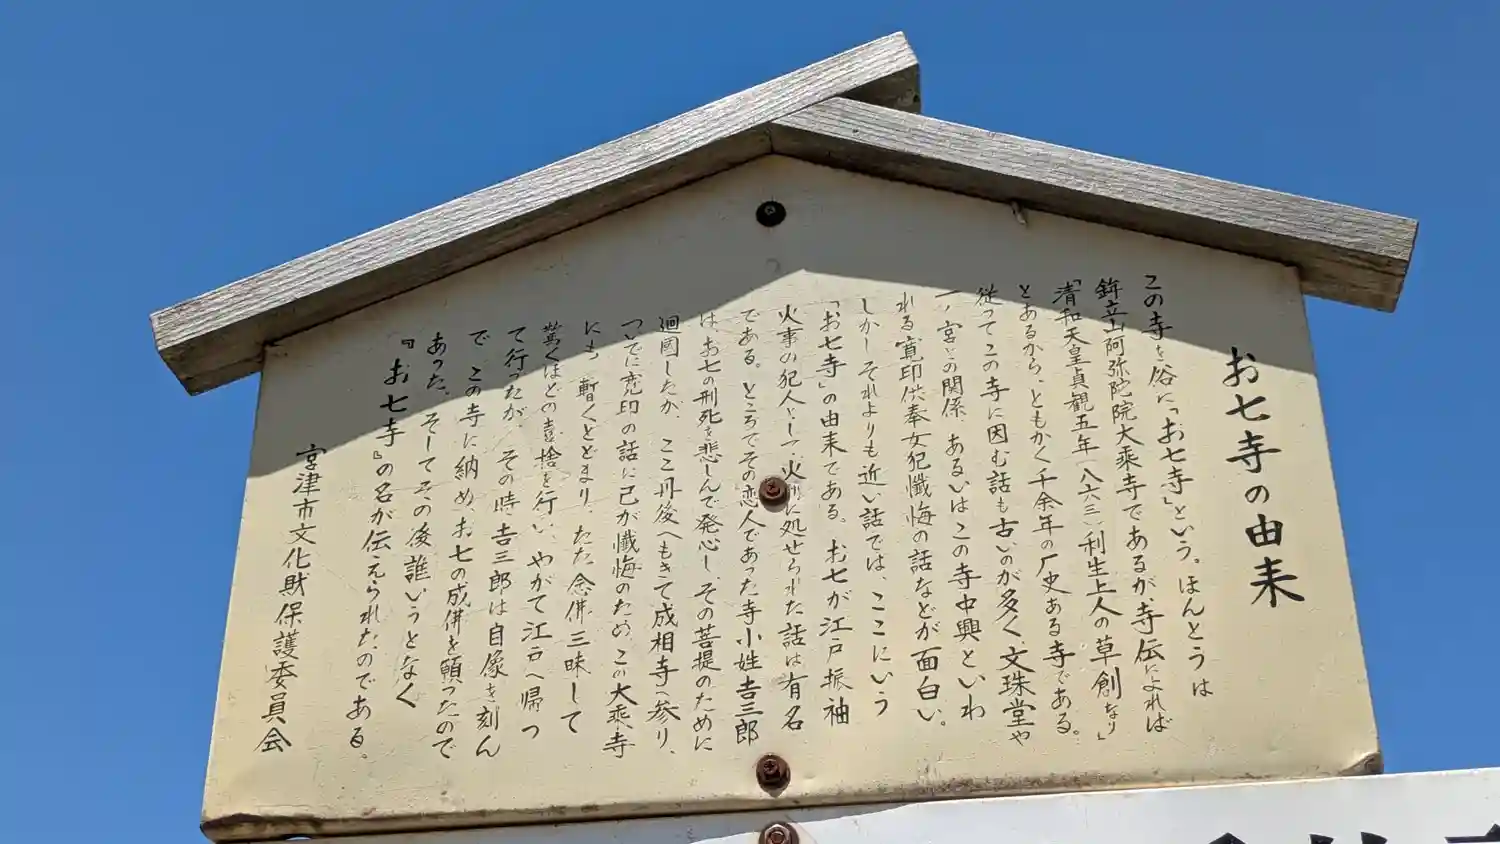 お七寺の由来
この寺を俗に「お七寺」という。ほんとうは
鉾立山阿弥陀院大乗寺であるが、寺伝によれば
「清和天皇貞観五年(八六三)利生上人の草創なり」
とあるから、ともかく千余年の厂史ある寺である。
従ってこの寺に因む話も古いのが多く、文珠堂や
一ノ宮との関係、あるいはこの寺中興といわ
れる寛印供奉女犯懺悔の話などが面白い。
しかしそれよりも近い話では、ここにいう
「お七寺」の由来である。お七が江戸振袖
火事の犯人として、火刑に処せられた話は有名
である。ところでその恋人であった寺小姓吉三郎
は、お七の刑死を悲しんで発心し、その菩提のために
廻國したが、ここ丹後へもきて成相寺へ参り、
ついでに寛印の話に己が懺悔のため、この大乗寺
にも暫くとどまり、たゞ念佛三昧して
驚くほどの喜捨を行い、やがて江戸へ帰っ
て行ったが、その時吉三郎は自像を刻ん
で、この寺に納め、お七の成佛を願ったので
あった。そしてその後誰いうとなく
『お七寺』の名が伝えられたのである。
宮津市文化財保護委員会